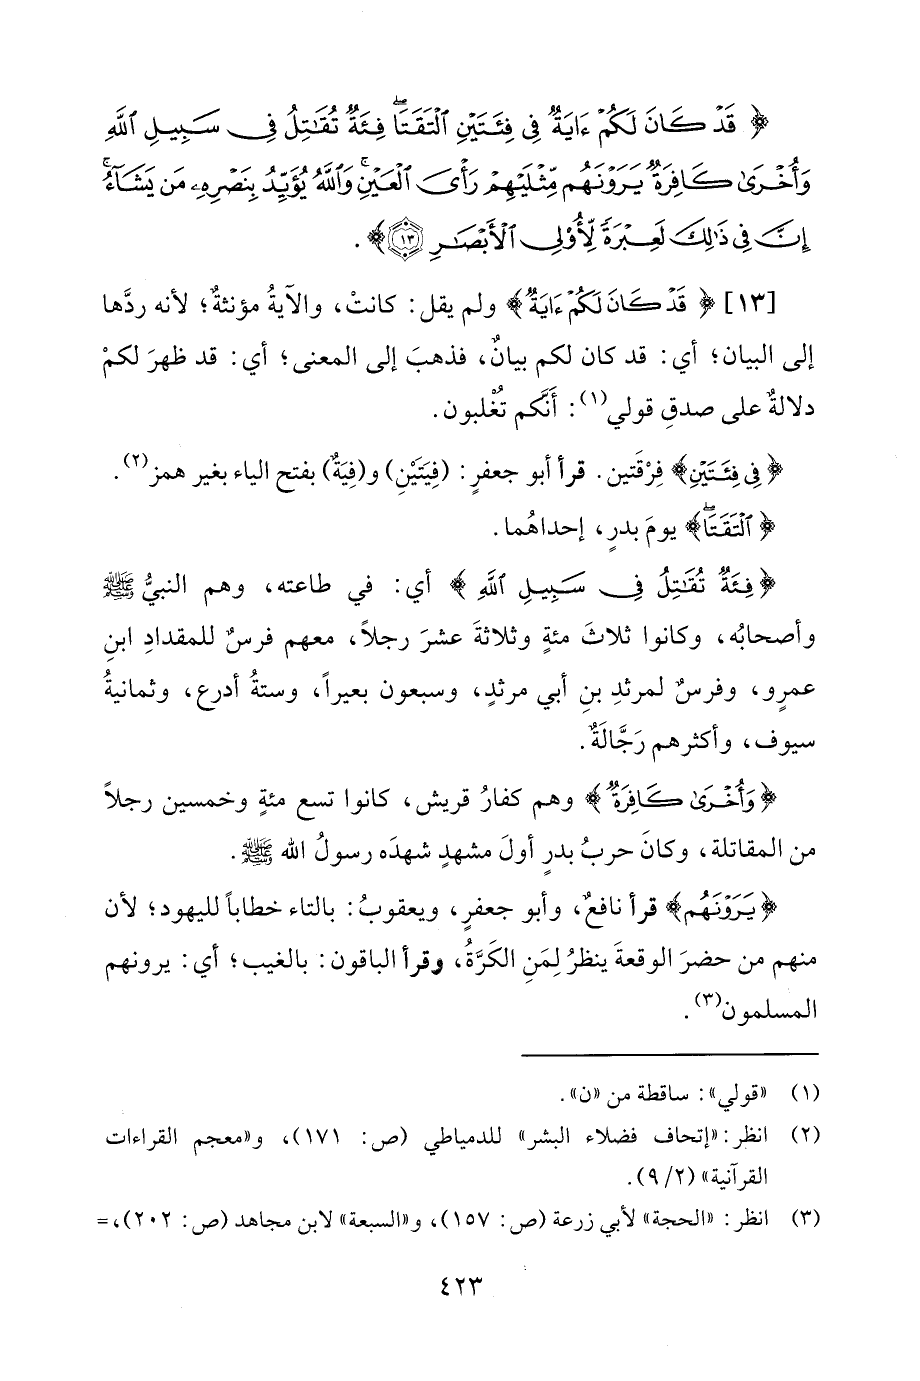 ﴿ قَدْ كَانَ لَكُمْ ءَايَةٌ فِي فِئَتَيْنِ الْتَقَتَا ۖ فِئَةٌ تُقَٰتِلُ فِى سَبِيلِ اللَّهِ
وَأُخْرَىٰ كَافِرَةٌ يَرَوْنَهُم مِّثْلَيْهِمْ رَأْىَ الْعَيْنِ ۚ وَاللَّهُ يُؤَيِّدُ بِنَصْرِهِۦ مَن يَشَآءُ ۗ
إِنَّ فِى ذَٰلِكَ لَعِبْرَةً لِّأُوْلِى الْأَبْصَٰرِ ١٣ ﴾ .
[١٣] ﴿ قَدْ كَانَ لَكُمْ ءَايَةٌ ﴾ ولم يقل: كانتْ، والآيةُ مؤنثةٌ؛ لأنه ردَّها
إلى البيان؛ أي: قد كان لكم بيانٌ، فذهبَ إلى المعنى؛ أي: قد ظهرَ لكمْ
دلالةٌ على صدقِ قولي(١): أَنَّكم تُغْلبون.
﴿ فِي فِئَتَيْنِ ﴾ فِرْقَتين. قرأ أبو جعفرٍ: (فِيَتَيْنِ) و(فِيَةٌ) بفتح الياء بغير همز(٢).
﴿ الْتَقَتَا ۖ ﴾ يومَ بدرٍ، إحداهُما.
﴿ فِئَةٌ تُقَٰتِلُ فِى سَبِيلِ اللَّهِ ﴾ أي: في طاعته، وهم النبيُّ ﷺ
وأصحابُه، وكانوا ثلاثَ مئةٍ وثلاثةَ عشرَ رجلاً، معهم فرسٌ للمقدادِ ابنِ
عمرٍو، وفرسٌ لمرثدِ بنِ أبي مرثدٍ، وسبعون بعيراً، وستةُ أدرع، وثمانيةُ
سيوف، وأكثرهم رَجَّالَةٌ.
﴿ وَأُخْرَىٰ كَافِرَةٌ ﴾ وهم كفارُ قريش، كانوا تسع مئةٍ وخمسين رجلاً
من المقاتلة، وكانَ حربُ بدرٍ أولَ مشهدٍ شهدَه رسولُ الله ﷺ.
﴿ يَرَوْنَهُم ﴾ قرأ نافعٌ، وأبو جعفرٍ، ويعقوبُ: بالتاء خطاباً لليهود؛ لأن
منهم من حضرَ الوقعةَ ينظرُ لِمَنِ الكَرَّةُ، وقرأ الباقون: بالغيب؛ أي: يرونهم
المسلمون(٣).
(١) «قولي»: ساقطة من «ن».
(٢) انظر: «إتحاف فضلاء البشر» للدمياطي (ص: ١٧١)، و«معجم القراءات
القرآنية» (٢/ ٩).
(٣) انظر: «الحجة» لأبي زرعة (ص: ١٥٧)، و«السبعة» لابن مجاهد (ص: ٢٠٢)،=
٤٢٣